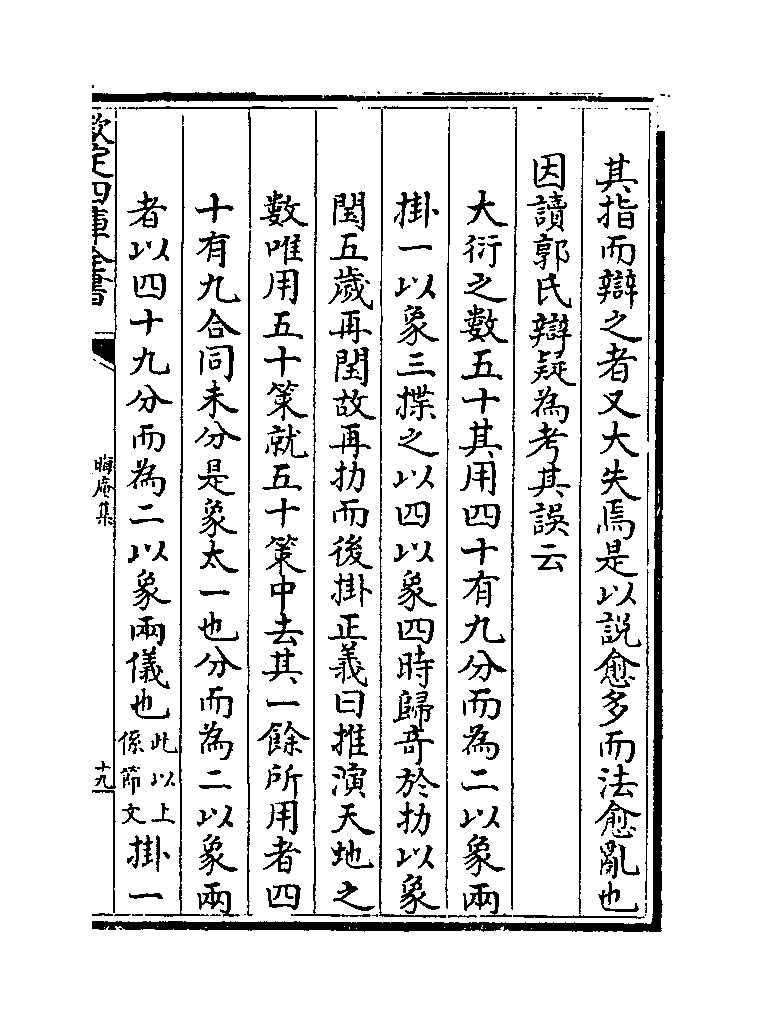 其指而辯之者又大失焉是以説愈多而法愈亂也
因讀郭氏辯疑為考其誤云
大衍之數五十其用四十有九分而為二以象兩
掛一以象三揲之以四以象四時歸奇於扐以象
閏五歲再閏故再扐而後掛正義曰推演天地之
數唯用五十策就五十策中去其一餘所用者四
十有九合同未分是象太一也分而為二以象兩
者以四十九分而為二以象兩儀也此以上係節文掛一
欽定四庫全書
晦庵集
十九